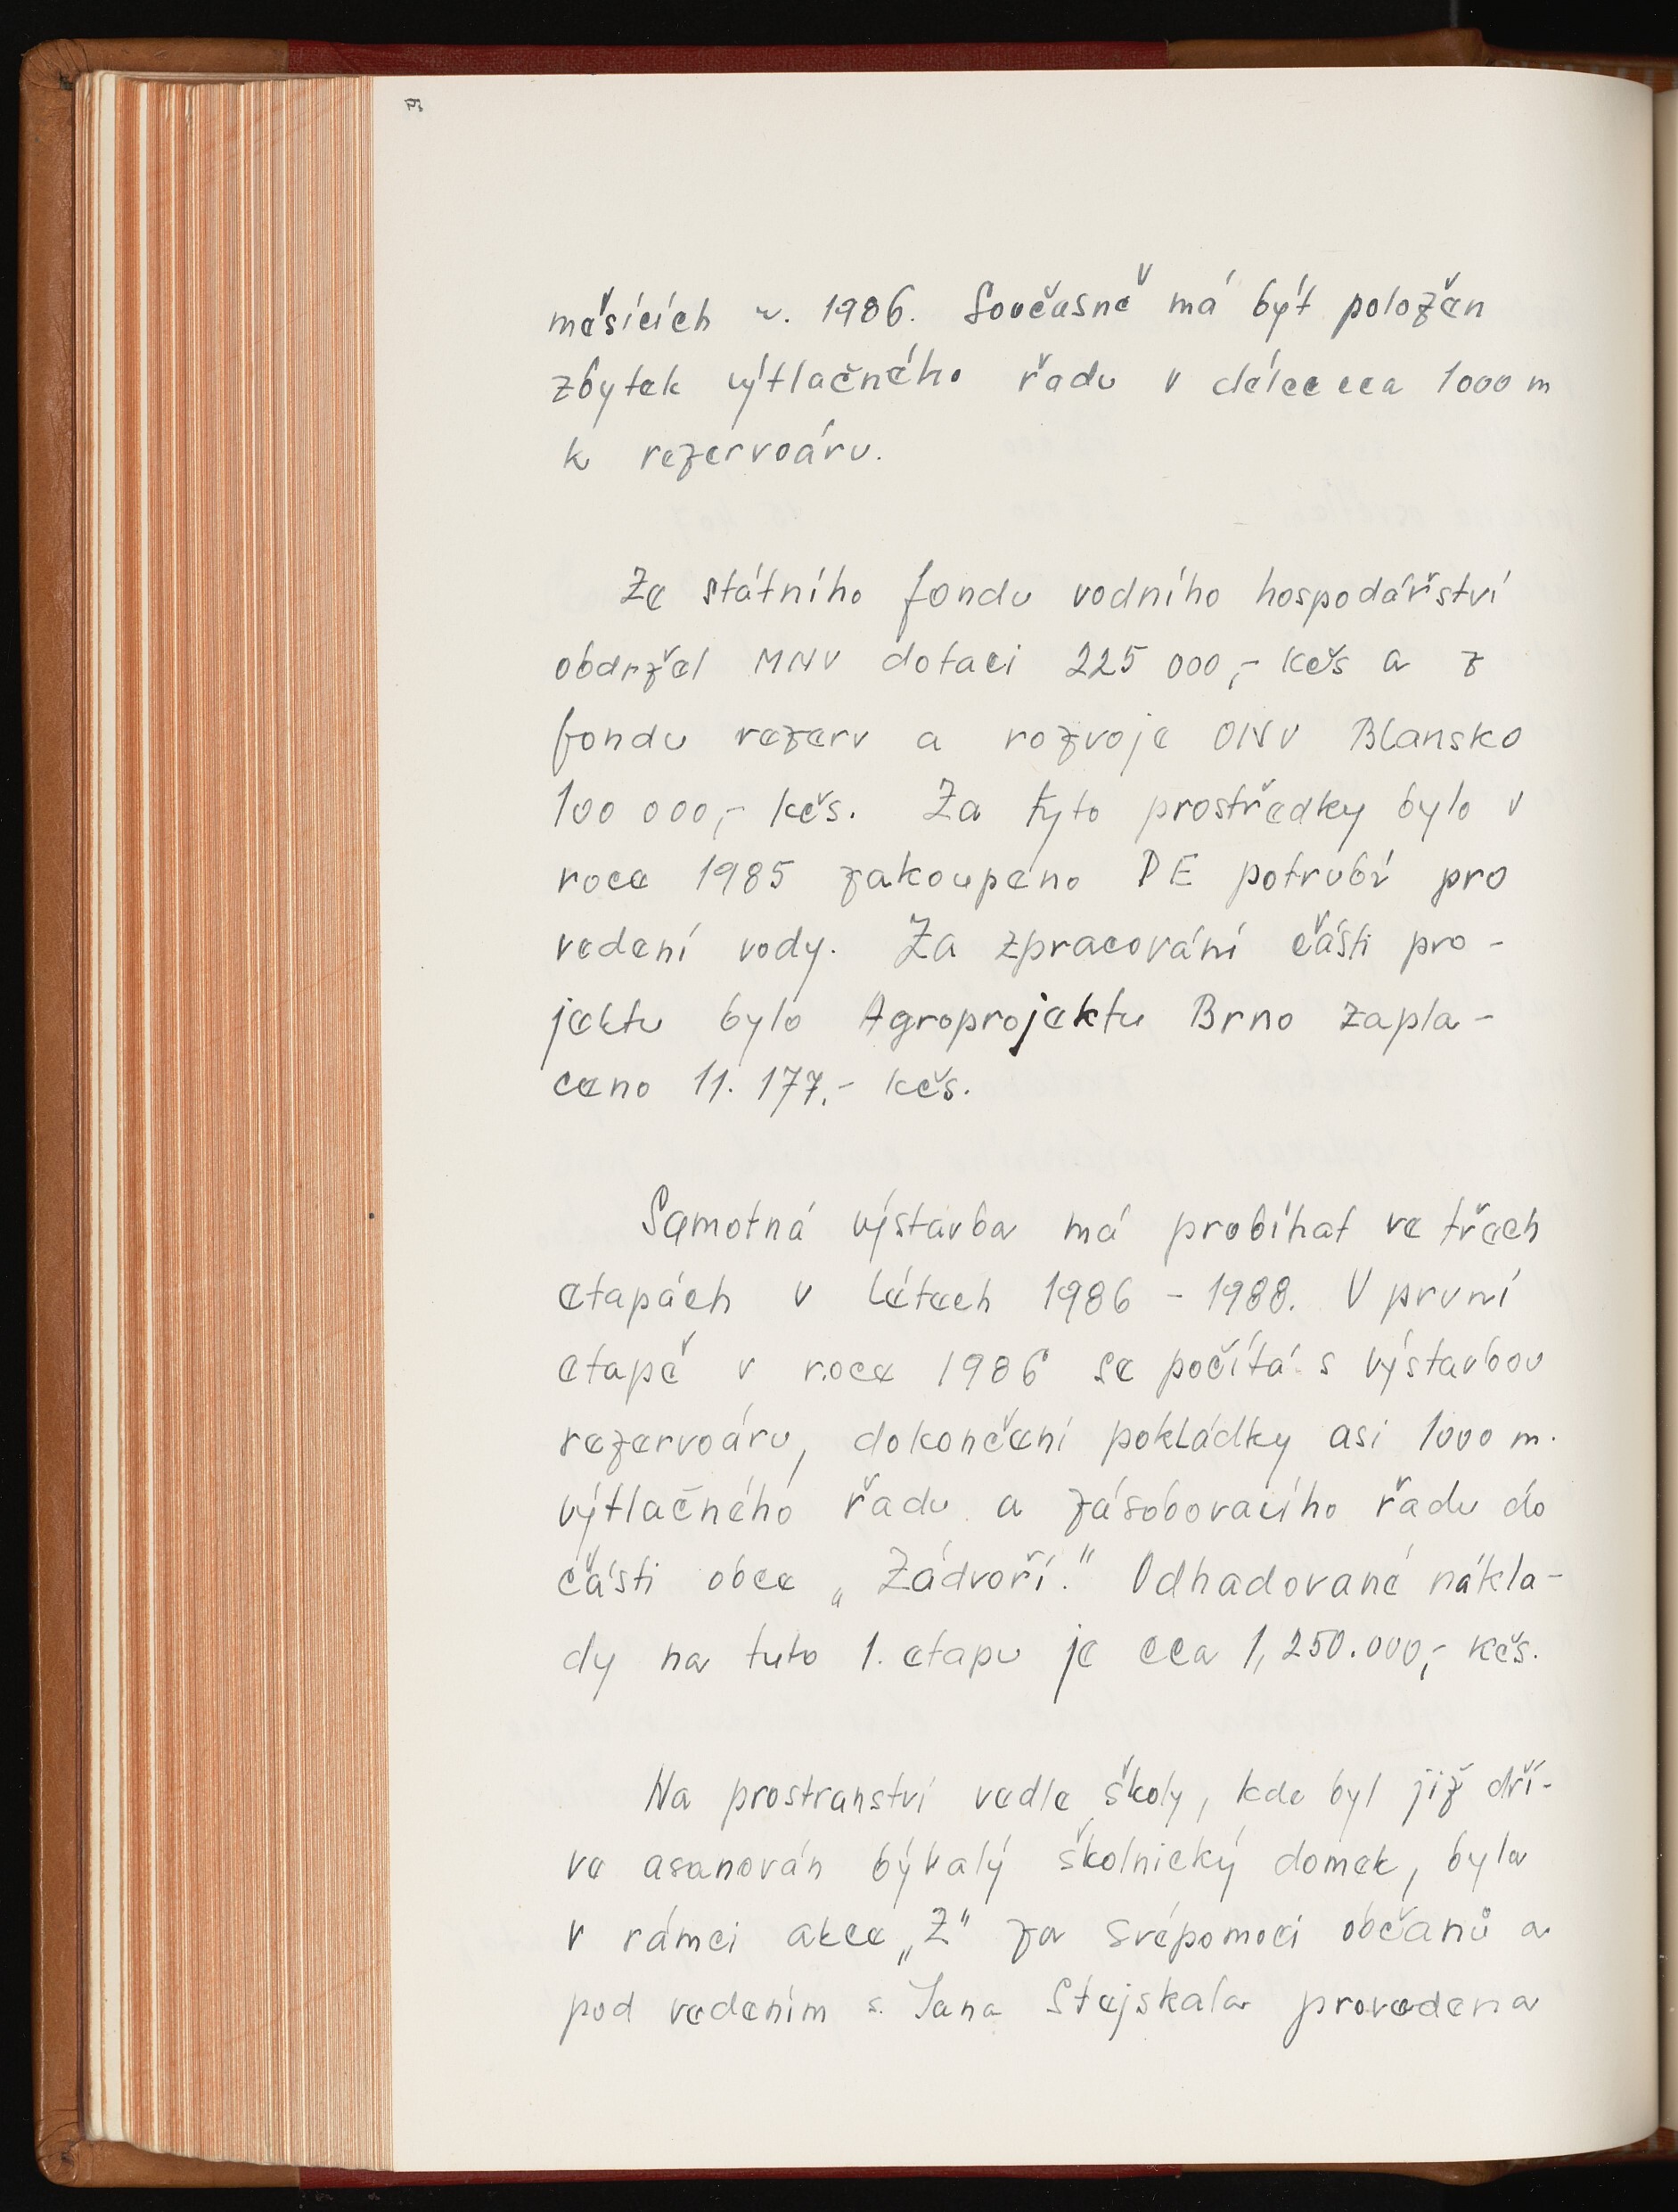 měsících r. 1986. Současně má být položen
zbytek výtlačného řadu v délce cca 1000 m
k rezervoáru.
Ze státního fondu vodního hospodářství
obdržel MNV dotaci 225 000,- kčs a z
fondu rezerv a rozvoje ONV Blansko
100 000,- kčs. Za tyto prostředky bylo v
roce 1985 zakoupeno PE potrubí pro
vedení vody. Za zpracování části pro-
jektu bylo Agroprojektu Brno zapla-
ceno 11. 177.- kčs.
Samotná výstavba má probíhat ve třech
etapách v létech 1986 - 1988. V první
etapě v roce 1986 se počítá s výstavbou
rezervoáru, dokončení pokládky asi 1000 m.
výtlačného řadu a zásobovacího řadu do
části obce „Zádvoří." Odhadované nákla-
dy na tuto 1. etapu je cca 1,250.000,- kčs.
Na prostranství vedle školy, kde byl již dří-
ve asanován bývalý školnický domek, byla
v rámci akce „Z" za svépomoci občanů a
pod vedením s. Jana Stejskala provedena